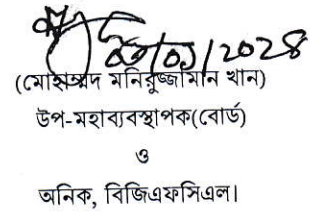 (মোহাম্মদ মনিরুজ্জামান খান)
উপ-মহাব্যবস্থাপক(বোর্ড)
ও
অনিক, বিজিএফসিএল।